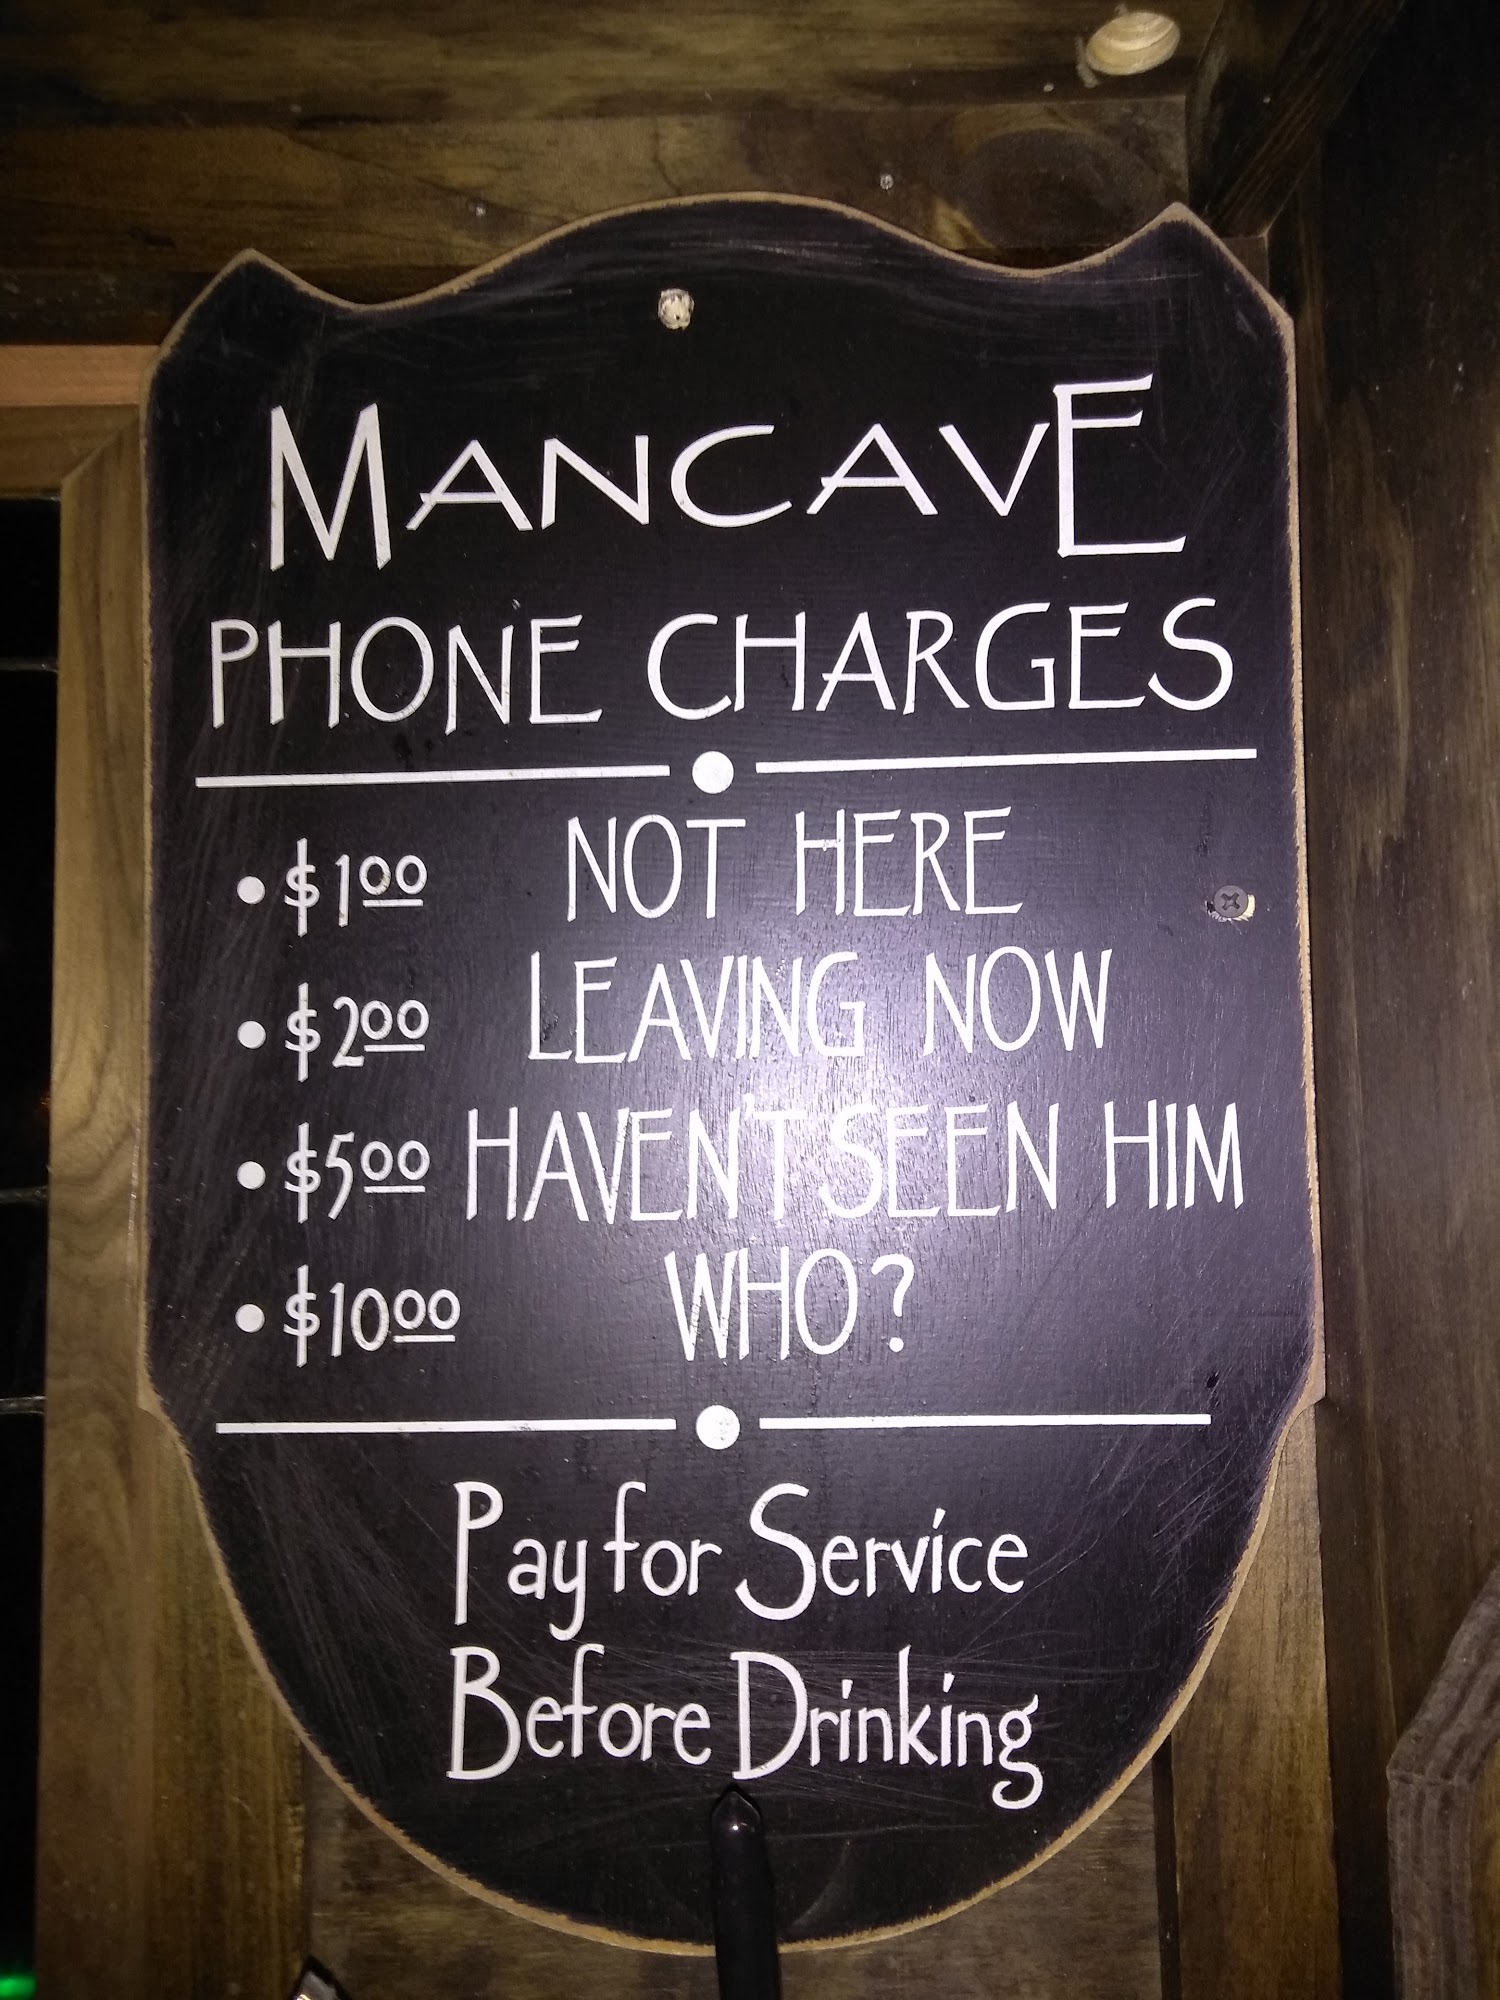 MANCAVE
PHONE CHARGES
• $1.00 NOT HERE
• $2.00 LEAVING NOW
• $5.00 HAVEN'T SEEN HIM
• $10.00 WHO?
Pay for Service
Before Drinking